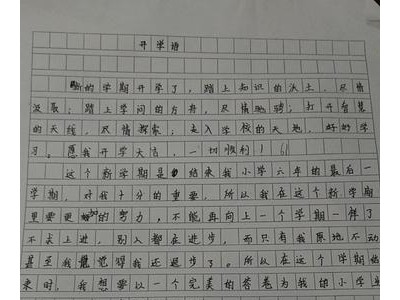 开学语
新的学期开学了，踏上知识的沃土，尽情
汲取；踏上学问的方舟，尽情驰骋；打开智慧
的天线，尽情探索；走入学校的天地，好好学
习。愿我开学大吉，一切顺利！61
这个新学期是结束我小学六年的最后一
学期，对我十分的重要，所以我在这个新学期
里要更加的努力，不能再向上一个学期一样了
不求上进，别人都在进步，而只有我原地不动
甚至我觉得我还退步了。所以在这个学期结
束时，我想要以一个完美的答卷为我的小学生